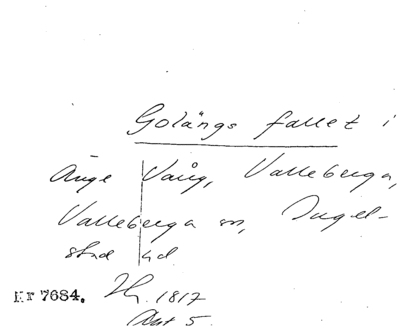 Golängs fallet i
Änge Vång, Valleberga,
Valleberga sn, Ingel-
stad hd
Nr 7684. 1817
Akt 5.